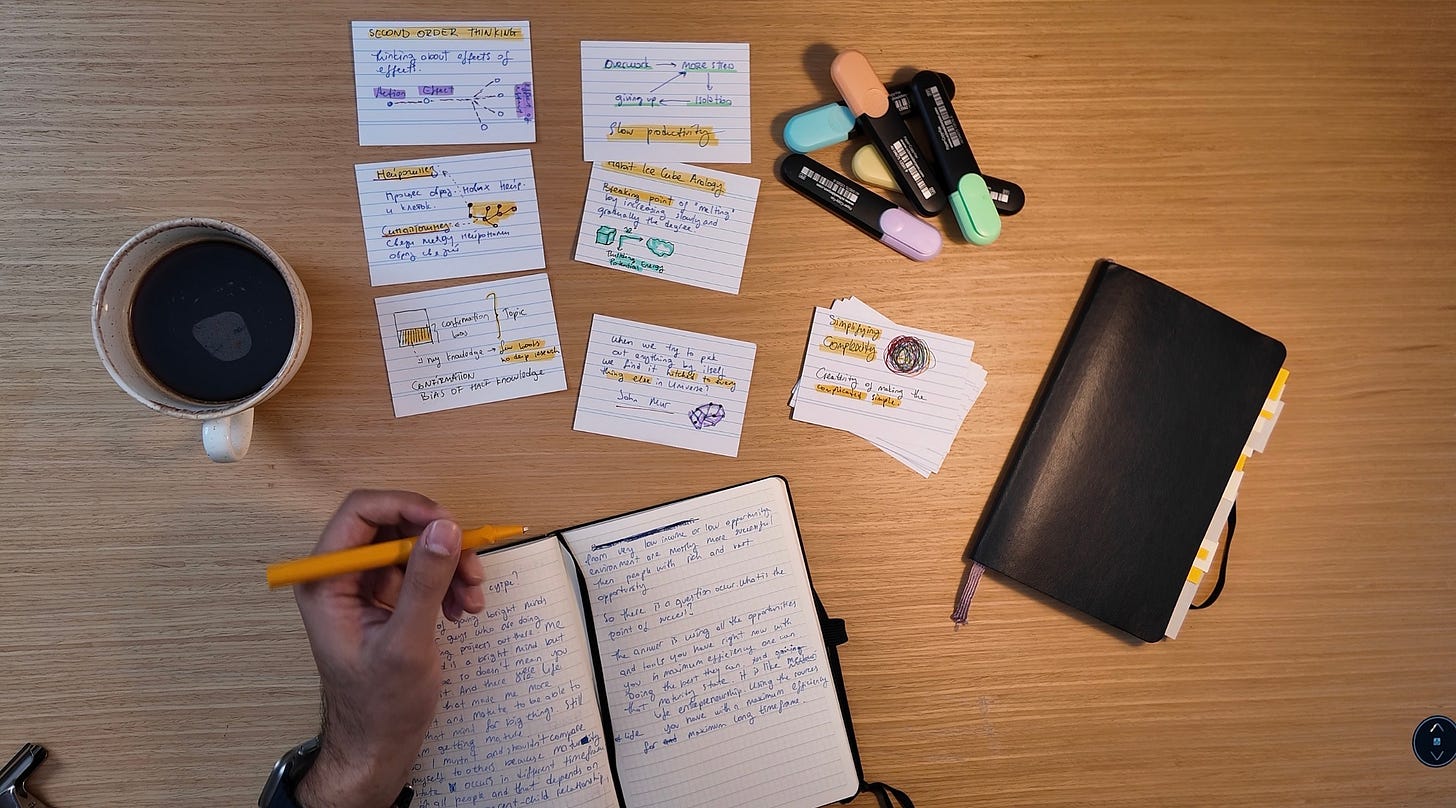 SECOND ORDER THINKING
Thinking about effects of
effects.
Action Effect
Overwork → more stress
giving up ← Isolation
Slow productivity
Нейро
Процес обраʒ. новых нейр.
и клеток.
связи между нейронами
Habit Ice Cube Analogy
Breaking point of "melting"
by increasing slowly and
gradually the degree
Building
Potential Energy
? confirmation } Topic
bias
my knowledge → few books
no deep research
CONFIRMATION
BIAS OF HALF KNOWLEDGE
When we try to pick
out anything by itself
we find it hitched to every
thing else in Universe?
John Muir
Simplifying
Complexity
Creativity of making the
complicated simple.
of going bright minds
guys who are doing
projects out there. Me
is a bright mind but
so doesn't mean you
it. And there life
that made me more
and mature to be able to
that mind for big things. Still
getting mature
I mustn't and shouldn't compare
myself to others because maturity
state occurs in different timeframe
all people and that depends on
parent-child relationship,
from very low income or low opportunity
environment are mostly more successful
then people with rich and vast
opportunity
So there is a question occur. What is the
point of success?
The answer is using all the opportunities
and tools you have right now with
you in maximum efficiency one can
doing the best they can and
that maturity state. it is like
life entrepreneurship. Using the sources
you have with a maximum efficiency
for maximum long timeframe.